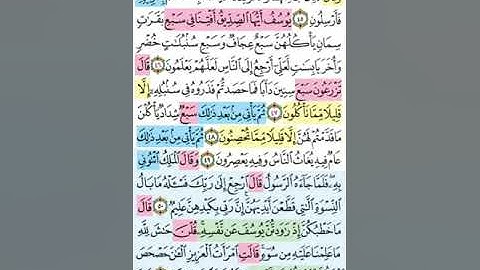 فَأَرْسِلُونِ ﴿٤٥﴾ يُوسُفُ أَيُّهَا الصِّدِّيقُ أَفْتِنَا فِي سَبْعِ بَقَرَاتٍ
سِمَانٍ يَأْكُلُهُنَّ سَبْعٌ عِجَافٌ وَسَبْعِ سُنْبُلَاتٍ خُضْرٍ
وَأُخَرَ يَابِسَاتٍ لَعَلِّي أَرْجِعُ إِلَى النَّاسِ لَعَلَّهُمْ يَعْلَمُونَ ﴿٤٦﴾ قَالَ
تَزْرَعُونَ سَبْعَ سِنِينَ دَأَبًا فَمَا حَصَدْتُمْ فَذَرُوهُ فِي سُنْبُلِهِ إِلَّا
قَلِيلًا مِمَّا تَأْكُلُونَ ﴿٤٧﴾ ثُمَّ يَأْتِي مِنْ بَعْدِ ذَلِكَ سَبْعٌ شِدَادٌ يَأْكُلْنَ
مَا قَدَّمْتُمْ لَهُنَّ إِلَّا قَلِيلًا مِمَّا تُحْصِنُونَ ﴿٤٨﴾ ثُمَّ يَأْتِي مِنْ بَعْدِ ذَلِكَ
عَامٌ فِيهِ يُغَاثُ النَّاسُ وَفِيهِ يَعْصِرُونَ ﴿٤٩﴾ وَقَالَ الْمَلِكُ ائْتُونِي
بِهِ فَلَمَّا جَاءَهُ الرَّسُولُ قَالَ ارْجِعْ إِلَى رَبِّكَ فَسْئَلْهُ مَا بَالُ
النِّسْوَةِ الَّتِي قَطَّعْنَ أَيْدِيَهُنَّ إِنَّ رَبِّي بِكَيْدِهِنَّ عَلِيمٌ ﴿٥٠﴾ قَالَ
مَا خَطْبُكُنَّ إِذْ رَاوَدْتُنَّ يُوسُفَ عَنْ نَفْسِهِ قُلْنَ حَاشَ لِلَّهِ
مَا عَلِمْنَا عَلَيْهِ مِنْ سُوءٍ قَالَتِ امْرَأَتُ الْعَزِيزِ الْآنَ حَصْحَصَ